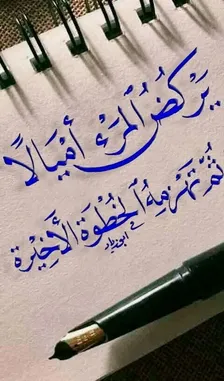 يَرْكُضُ الْمَرْءُ أَمْيَالًا
ثُمَّ تَهْزِمُهُ الْخُطْوَةُ الْأَخِيْرَة